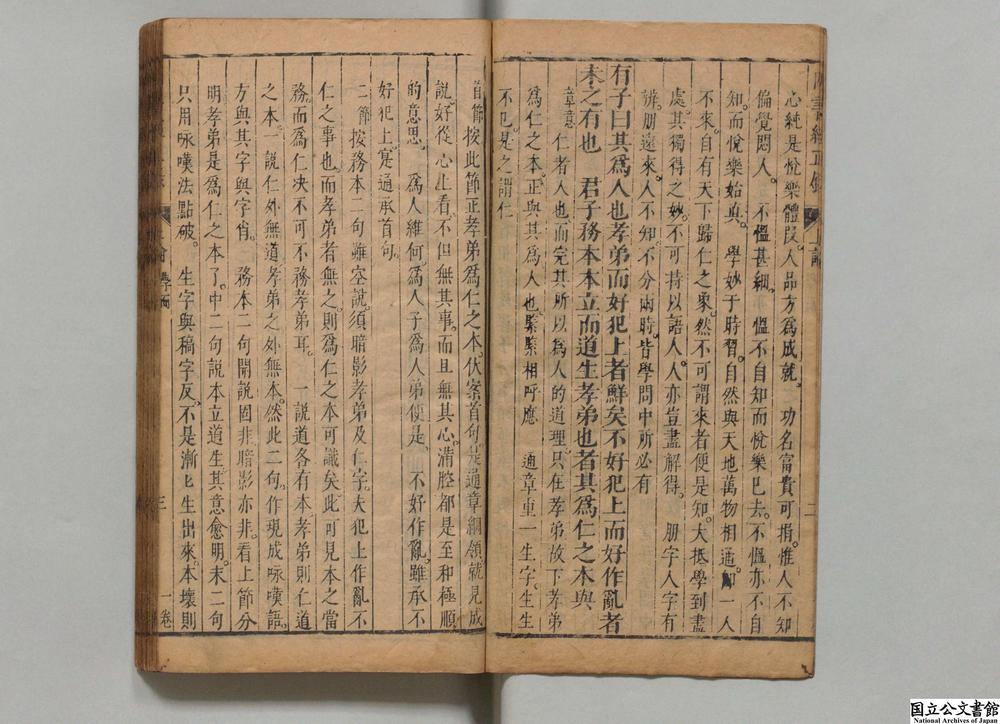 心純是悅樂體段。人品方爲成就。 功名富貴可捐。惟人不知
偏覺悶人。 不慍甚細。 慍不自知而悅樂已去。不慍亦不自
知。而悅樂始眞。 學妙于時習。自然與天地萬物相通。 一人
不來。自有天下歸仁之象。然不可謂來者便是知。大抵學到盡
處。其獨得之妙。不可持以語人。人亦豈盡解得。 朋字人字有
辨。朋遠來。人不知。不分兩時。皆學問中所必有
有子曰其爲人也孝弟而好犯上者鮮矣不好犯上而好作亂者
未之有也 君子務本本立而道生孝弟也者其爲仁之本與
章意 仁者人也。而完其所以爲人的道理。只在孝弟。故下孝弟
爲仁之本。正與其爲人也。緊緊相呼應 通章重一生字。生生
不已。是之謂仁
二
首節 按此節正孝弟爲仁之本。伏案首句是通章綱領就見成
說。好從心上看。不但無其事。而且無其心。滿腔都是至和極順
的意思。 爲人維何。爲人子爲人弟便是。 不好作亂。雖承不
好犯上。寔通承首句。
二節 按務本二句雖空說。須暗影孝弟及仁字。夫犯上作亂不
仁之事也。而孝弟者無之。則爲仁之本可識矣。此可見本之當
務。而爲仁決不可不務孝弟耳。 一說道各有本孝弟則仁道
之本。一說仁外無道。孝弟之外無本。然此二句。作現成咏嘆語。
方與其字與字肖。 務本二句開說固非。暗影亦非。看上節分
明孝弟是爲仁之本了。中二句說本立道生。其意愈明。末二句
只用咏嘆法點破。 生字與稿字反。不是漸匕生出來。本壞則
三
一卷
国立公文書館
National Archives of Japan